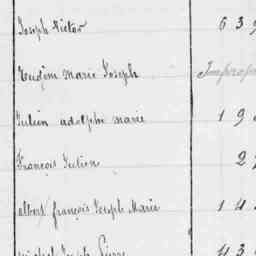 Joseph Victor 6 3 9
Eugène Marie Joseph Impropr
Julien adolphe marie 1 9
François Julien 2 2
albert françois Joseph Marie 1 4
michel Joseph Pierre 4 3